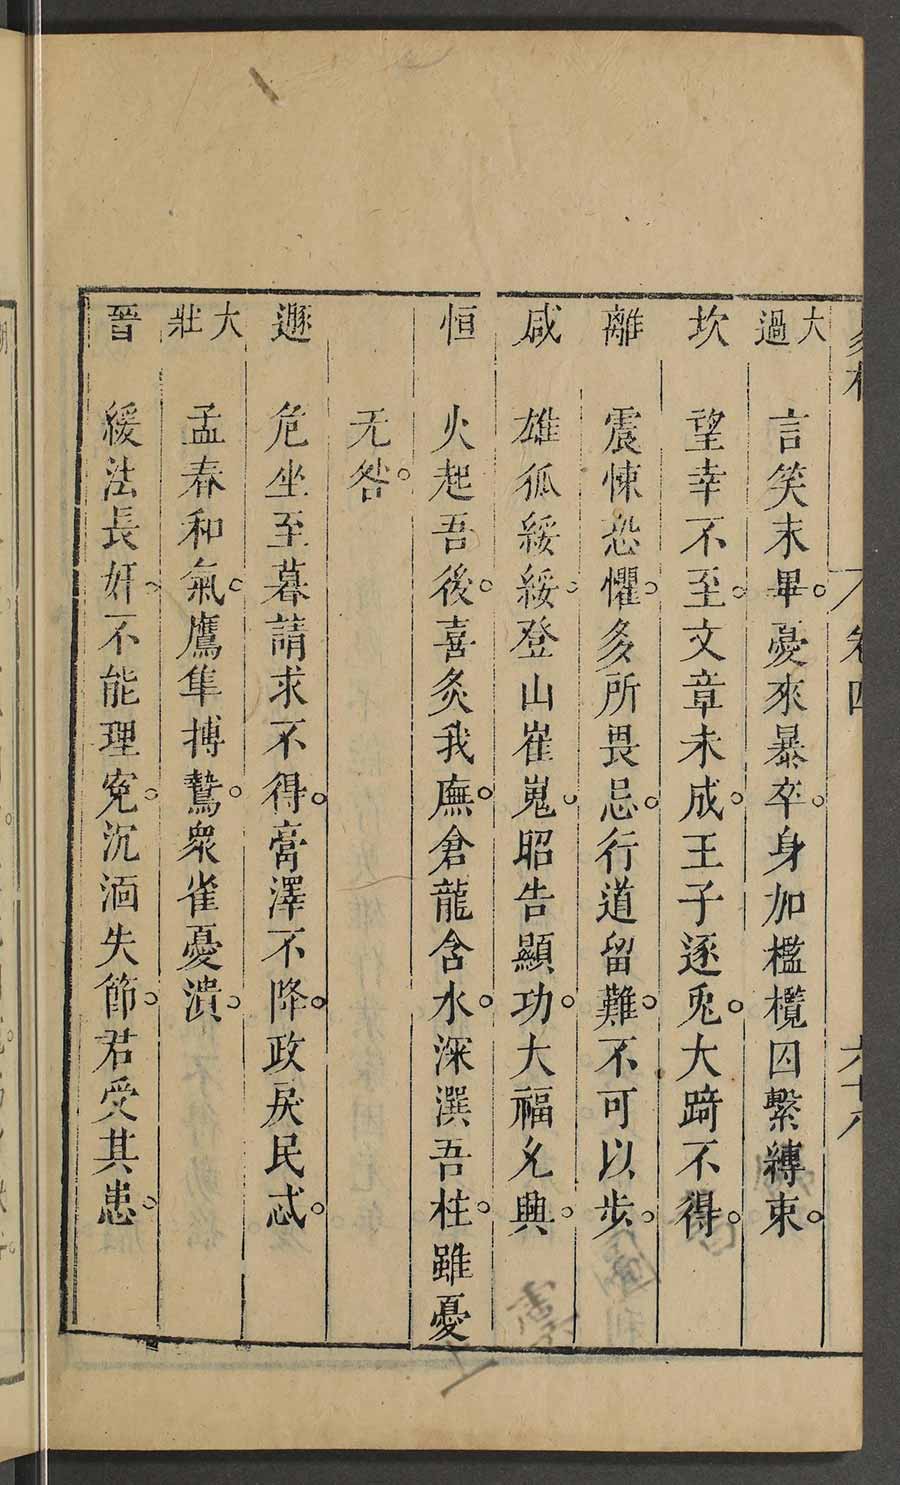 易林 卷四 六十八
大過 言笑未畢。憂來暴卒。身加檻欖囚繫縳束。
坎 望幸不至。文章未成。王子逐兎。大踦不得。
離 震悚恐懼。多所畏忌。行道留難。不可以步。
咸 雄狐綏綏。登山崔嵬。昭告顯功。大福允興。
恒 火起吾後。喜炙我廡。倉龍含水。深潠吾柱。雖憂
无咎。
遯 危坐至暮請求不得。膏澤不降。政戾民忒。
大壯 孟春和氣。鷹隼搏鷙。衆雀憂潰。
晉 緩法長奸。不能理寃。沉湎失節。君受其患。